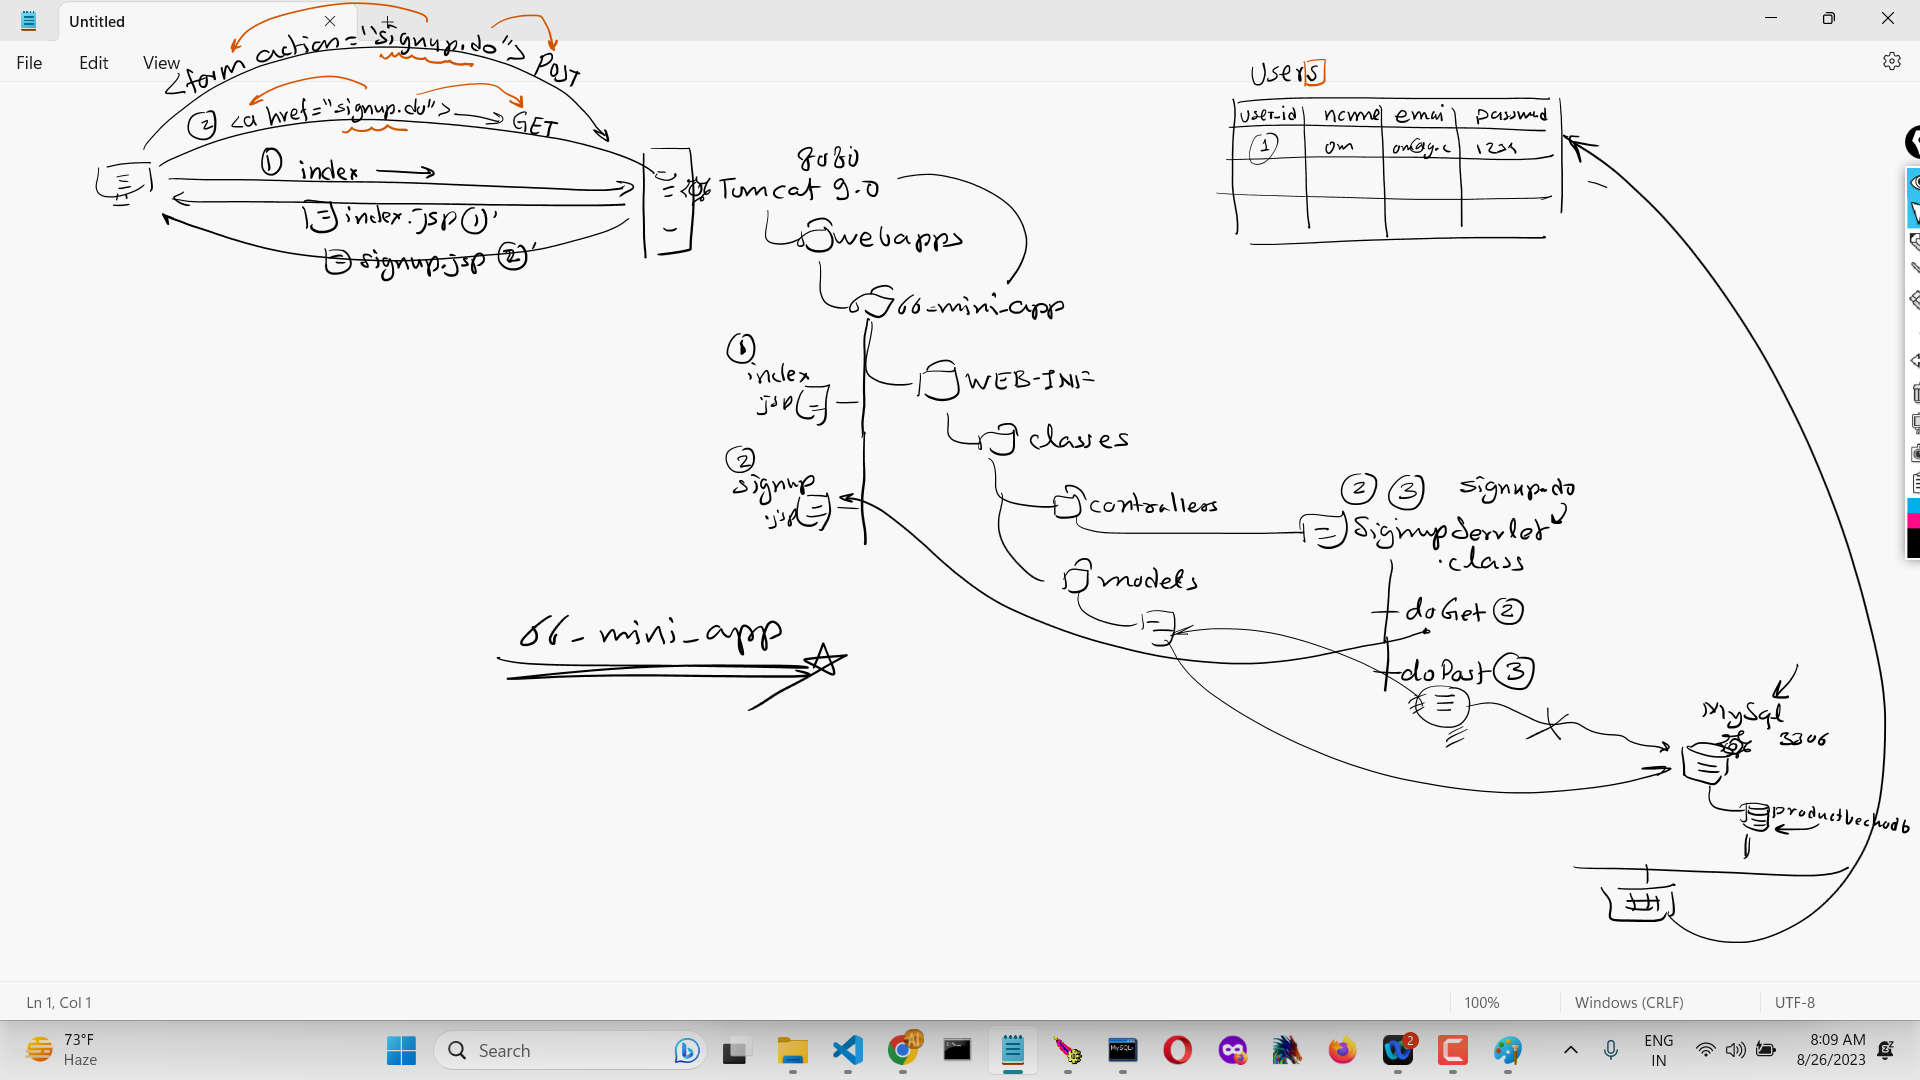 Untitled
File Edit View
<form action="signup.do"> POST
② <a href="signup.do"> GET
① index
index.jsp ①'
signup.jsp ②'
8080
Tomcat 9.0
webapps
66-mini-app
WEB-INF
classes
controllers
models
① index
.jsp
② signup
.jsp
② ③ signup.do
SignupServlet
.class
doGet ②
doPost ③
66-mini-app
Users
user-id name email password
1 om om@g.c 1234
MySql
3306
productbechodb
Ln 1, Col 1
100%
Windows (CRLF)
UTF-8
73°F
Haze
Search
2
ENG
IN
8:09 AM
8/26/2023